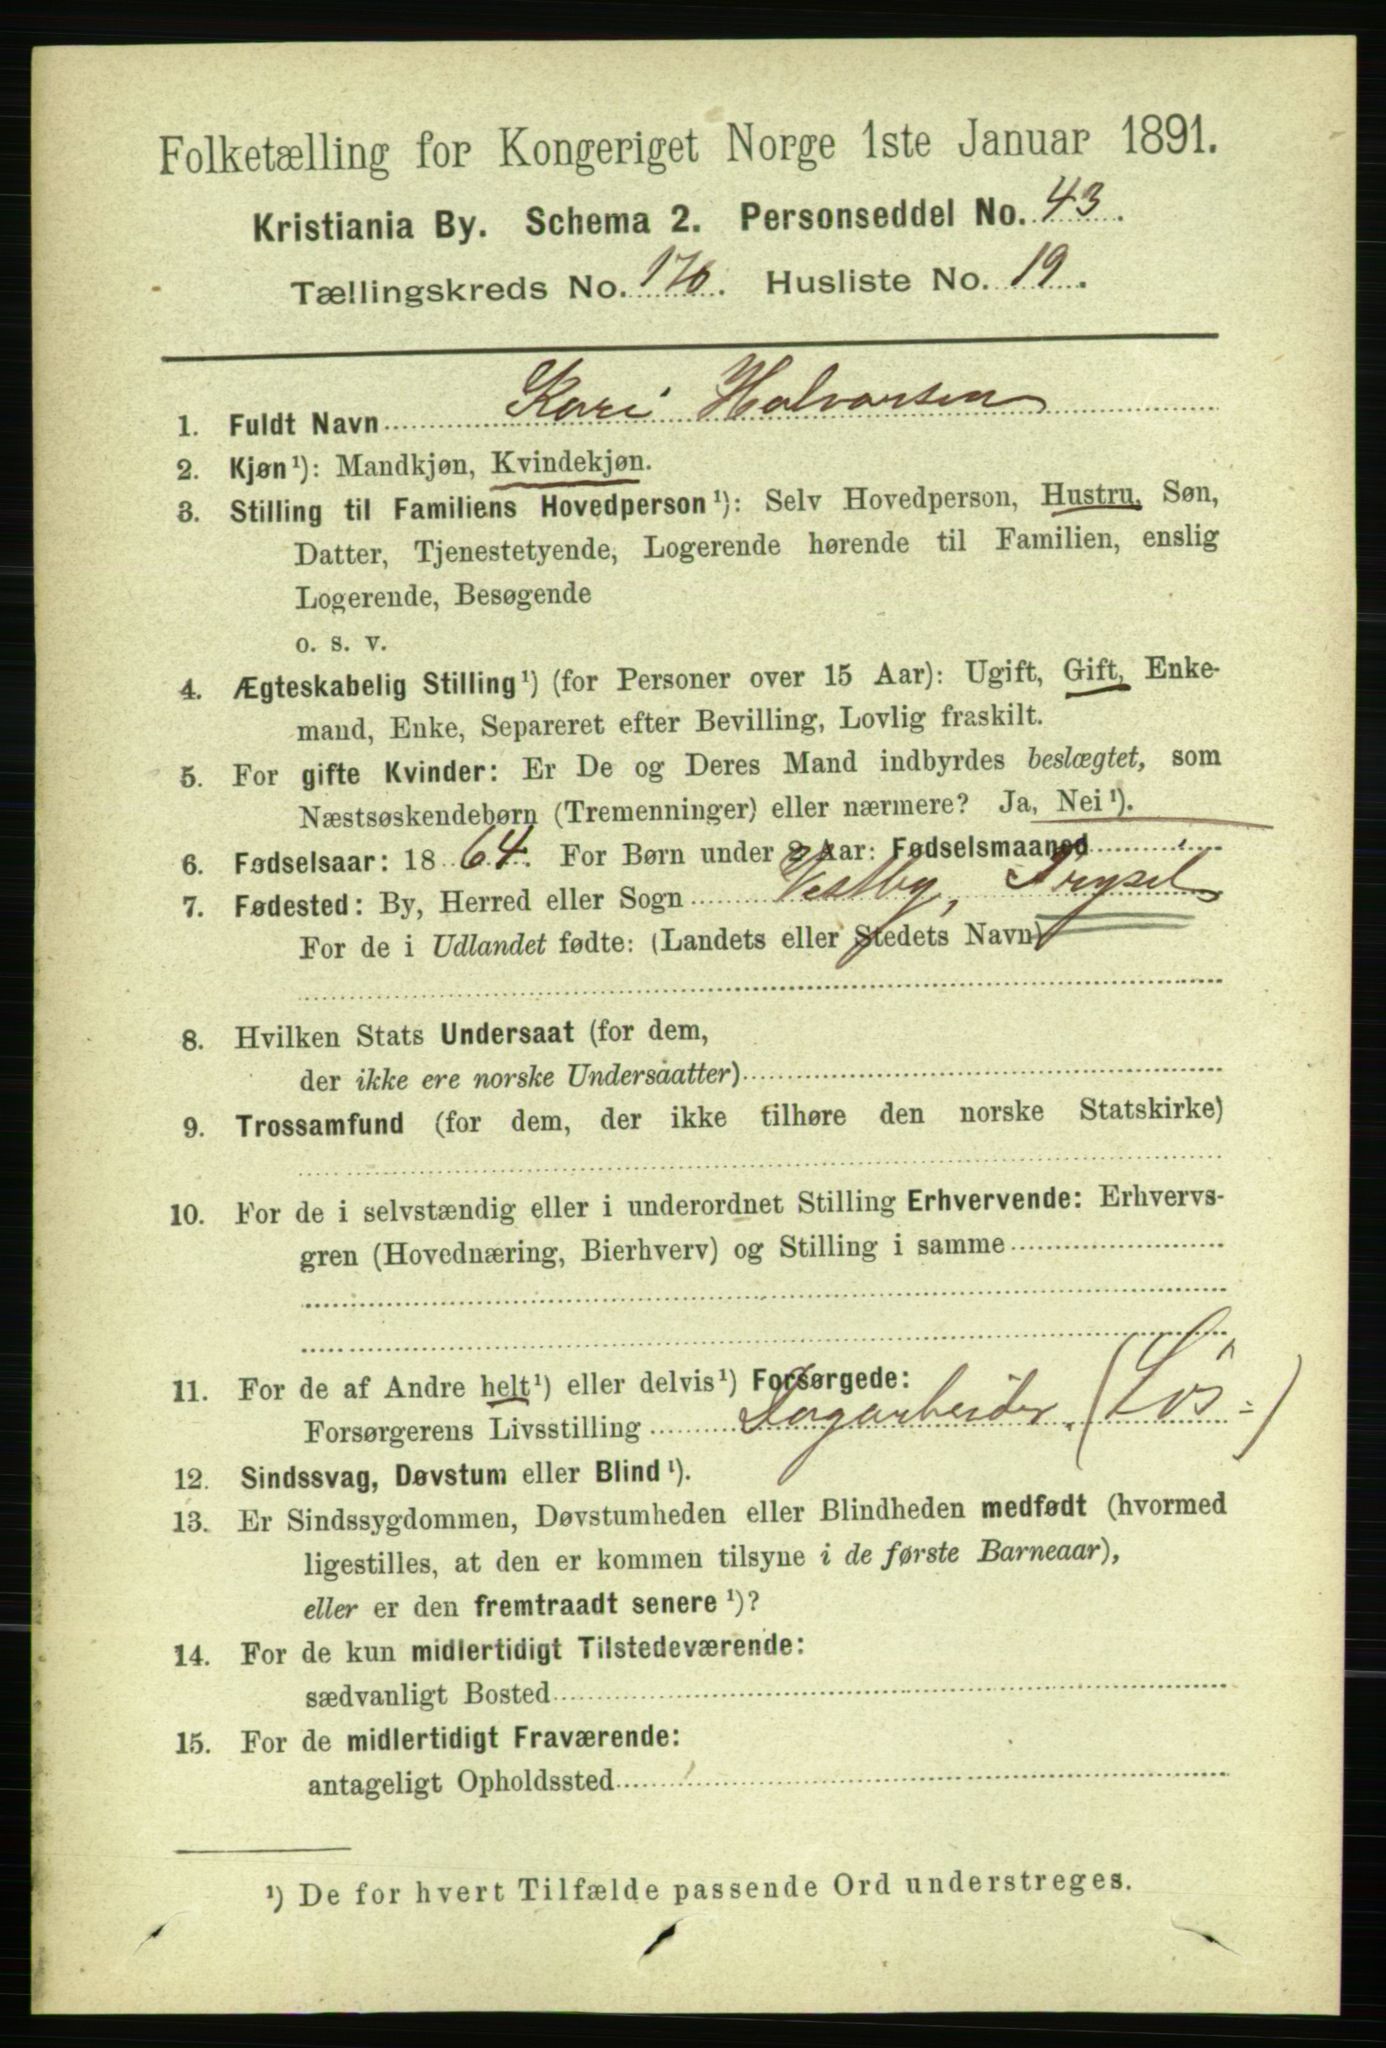 Folketælling for Kongeriget Norge 1ste Januar 1891.
Kristiania By. Schema 2. Personseddel No. 43.
Tællingskreds No. 170. Husliste No. 19.
1. Fuldt Navn Kari Halvorsen
2. Kjøn ¹): Mandkjøn, Kvindekjøn.
3. Stilling til Familiens Hovedperson ¹): Selv Hovedperson, Hustru, Søn,
Datter, Tjenestetyende, Logerende hørende til Familien, enslig
Logerende, Besøgende
o. s. v.
4. Ægteskabelig Stilling ¹) (for Personer over 15 Aar): Ugift, Gift, Enke-
mand, Enke, Separeret efter Bevilling, Lovlig fraskilt.
5. For gifte Kvinder: Er De og Deres Mand indbyrdes beslægtet, som
Næstsøskendebørn (Tremenninger) eller nærmere? Ja, Nei ¹).
6. Fødselsaar: 1864. For Børn under 2 Aar: Fødselsmaaned
7. Fødested: By, Herred eller Sogn Vestby, Trysil
For de i Udlandet fødte: (Landets eller Stedets Navn)
8. Hvilken Stats Undersaat (for dem,
der ikke ere norske Undersaatter)
9. Trossamfund (for dem, der ikke tilhøre den norske Statskirke)
10. For de i selvstændig eller i underordnet Stilling Erhvervende: Erhvervs-
gren (Hovednæring, Bierhverv) og Stilling i samme
11. For de af Andre helt ¹) eller delvis ¹) Forsørgede:
Forsørgerens Livsstilling Dagarbeider (Løs =)
12. Sindssvag, Døvstum eller Blind ¹).
13. Er Sindssygdommen, Døvstumheden eller Blindheden medfødt (hvormed
ligestilles, at den er kommen tilsyne i de første Barneaar),
eller er den fremtraadt senere ¹)?
14. For de kun midlertidigt Tilstedeværende:
sædvanligt Bosted
15. For de midlertidigt Fraværende:
antageligt Opholdssted
¹) De for hvert Tilfælde passende Ord understreges.